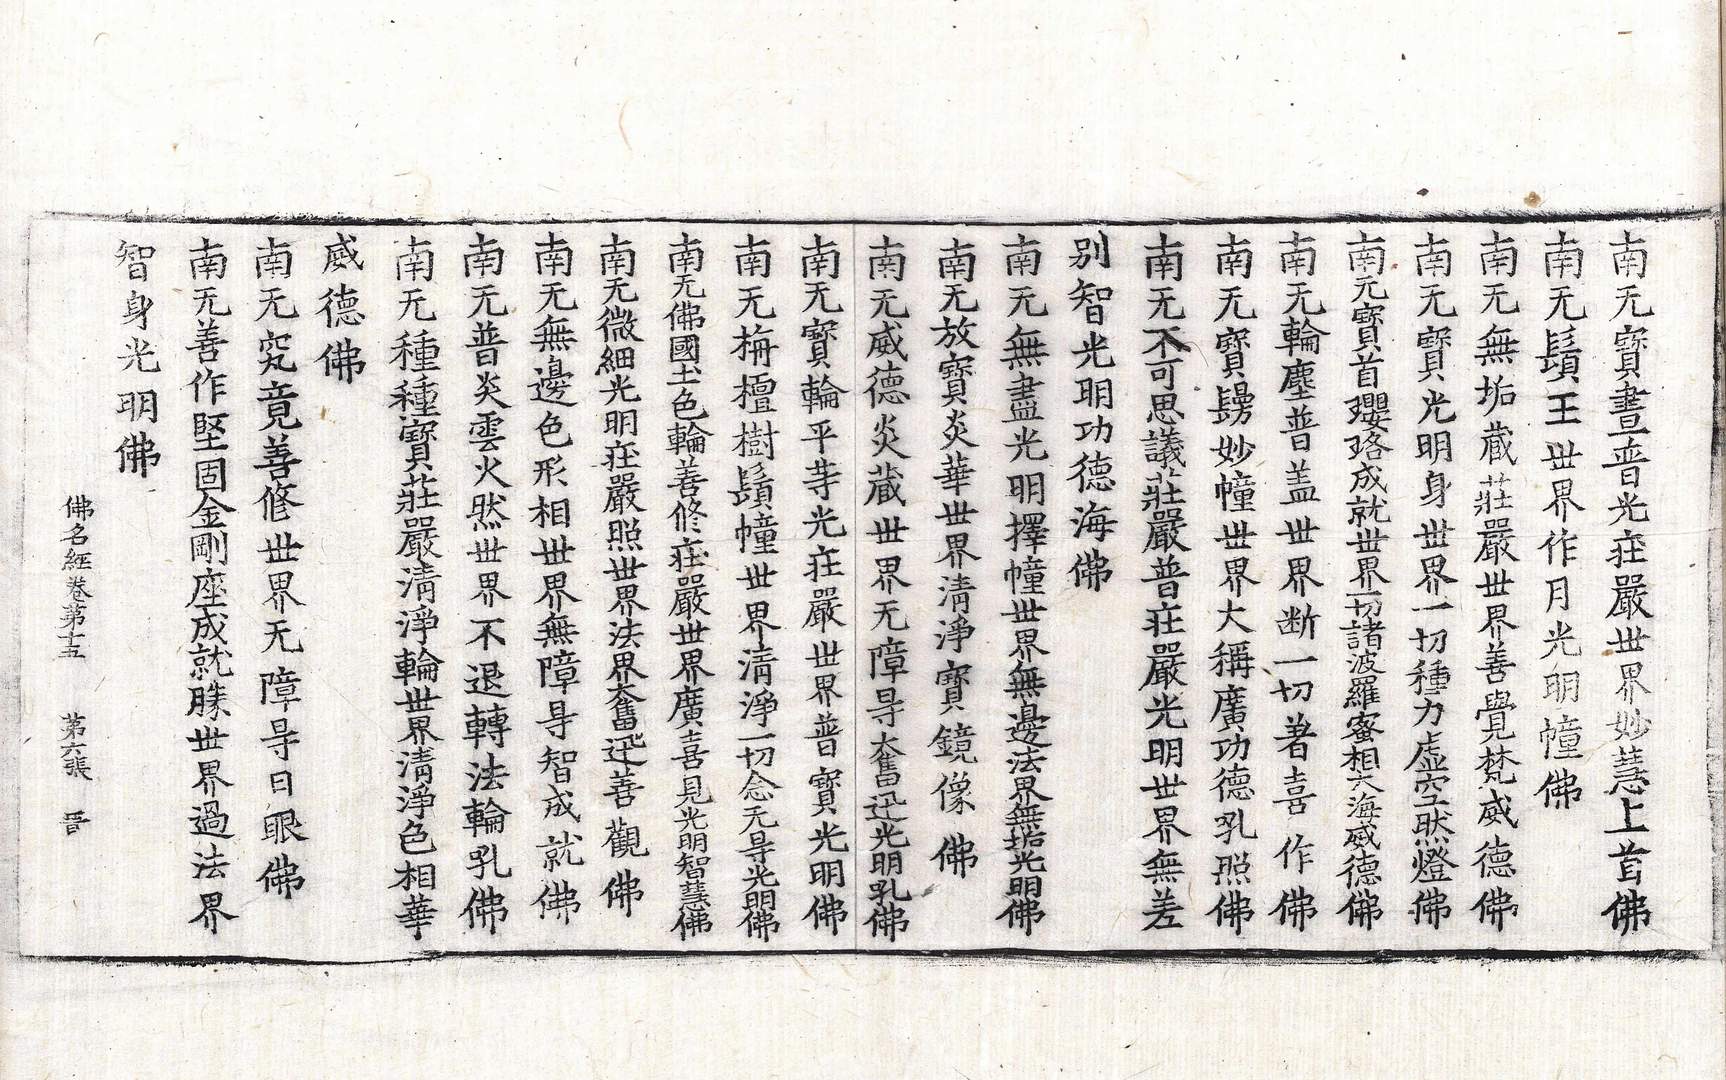 南无寶晝普光疘嚴世界妙慧上首佛
南无鬚王世界作月光明幢佛
南无無垢藏莊嚴世界善覺梵威德佛
南无寶光明身世界一切種力虛空然燈佛
南无寶首瓔珞成就世界一切諸波羅蜜相大海威德佛
南无輪塵普盖世界断一切著喜作佛
南无寶鬘妙幢世界大稱廣功德乳照佛
南无不可思議莊嚴普疘嚴光明世界無差
别智光明功德海佛
南无無盡光明擇幢世界無邊法界無垢光明佛
南无放寶炎華世界清淨寶鏡像佛
南无威德炎藏世界无障㝵奮迅光明乳佛
南无寶輪平䒭光疘嚴世界普寶光明佛
南无栴檀樹鬚幢世界清淨一切念无㝵光明佛
南无佛國土色輪善修疘嚴世界廣喜見光明智慧佛
南无微細光明疘嚴照世界法界奮迅善觀佛
南无無邊色形相世界無障㝵智成就佛
南无普炎雲火然世界不退轉法輪乳佛
南无種種寶莊嚴清淨輪世界清淨色相華
威德佛
南无究竟善修世界无障㝵日眼佛
南无善作堅固金剛座成就勝世界過法界
智身光明佛
佛名經卷第十五 第六張 晋